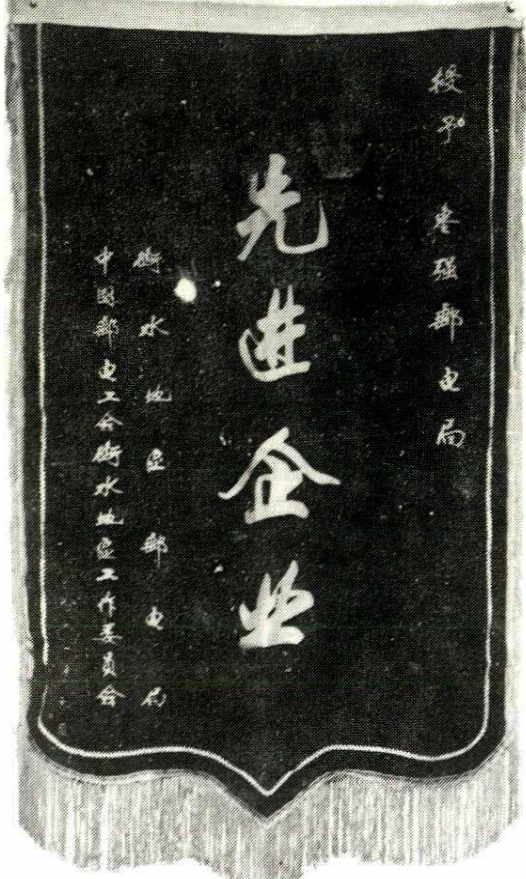 授予 枣强邮电局
先进企业
衡水地区邮电局
中国邮电工会衡水地区工作委员会